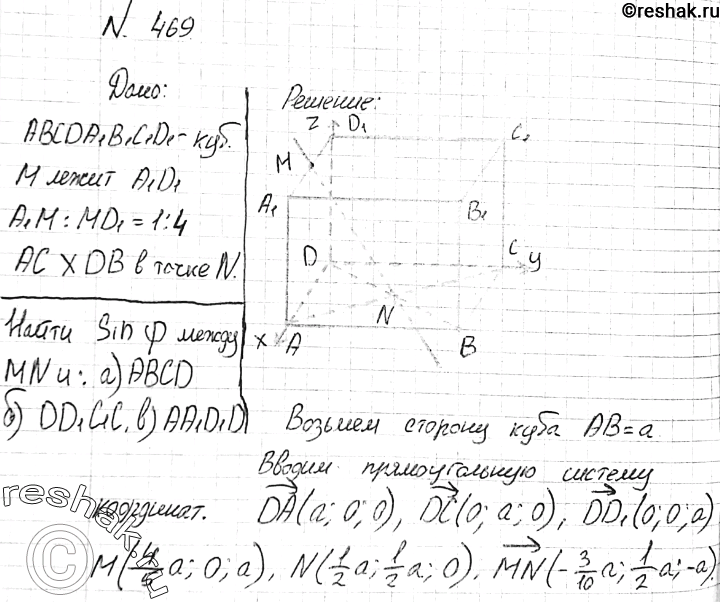 ©reshak.ru
N. 469
Дано:
ABCDA₁B₁C₁D₁ - куб.
M лежит A₁D₁
A₁M : MD₁ = 1:4
AC X DB в точке N.
Найти Sin φ между
MN и: а) ABCD
б) DD₁C₁C, в) AA₁D₁D
Решение:
Z D₁ C₁
M
A₁ B₁
D C y
N
x A B
Возьмем сторону куба AB=a
Вводим прямоугольную систему
координат. DA(a; 0; 0), DC(0; a; 0), DD₁(0; 0; a)
M(4/5 a; 0; a), N(1/2 a; 1/2 a; 0). MN(-3/10 a; 1/2 a; -a).
©reshak.ru